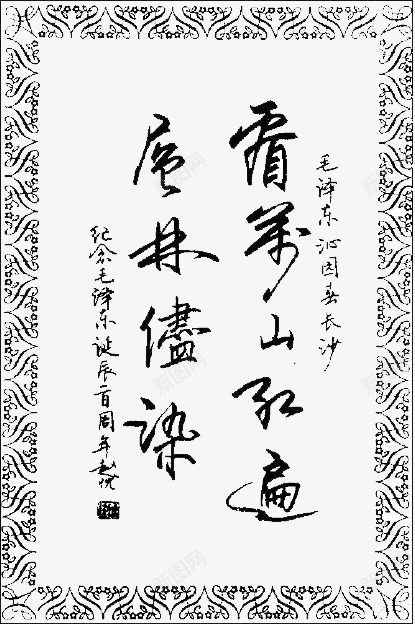 毛泽东沁园春长沙
看萬山红遍
层林儘染
纪念毛泽东诞辰一百周年